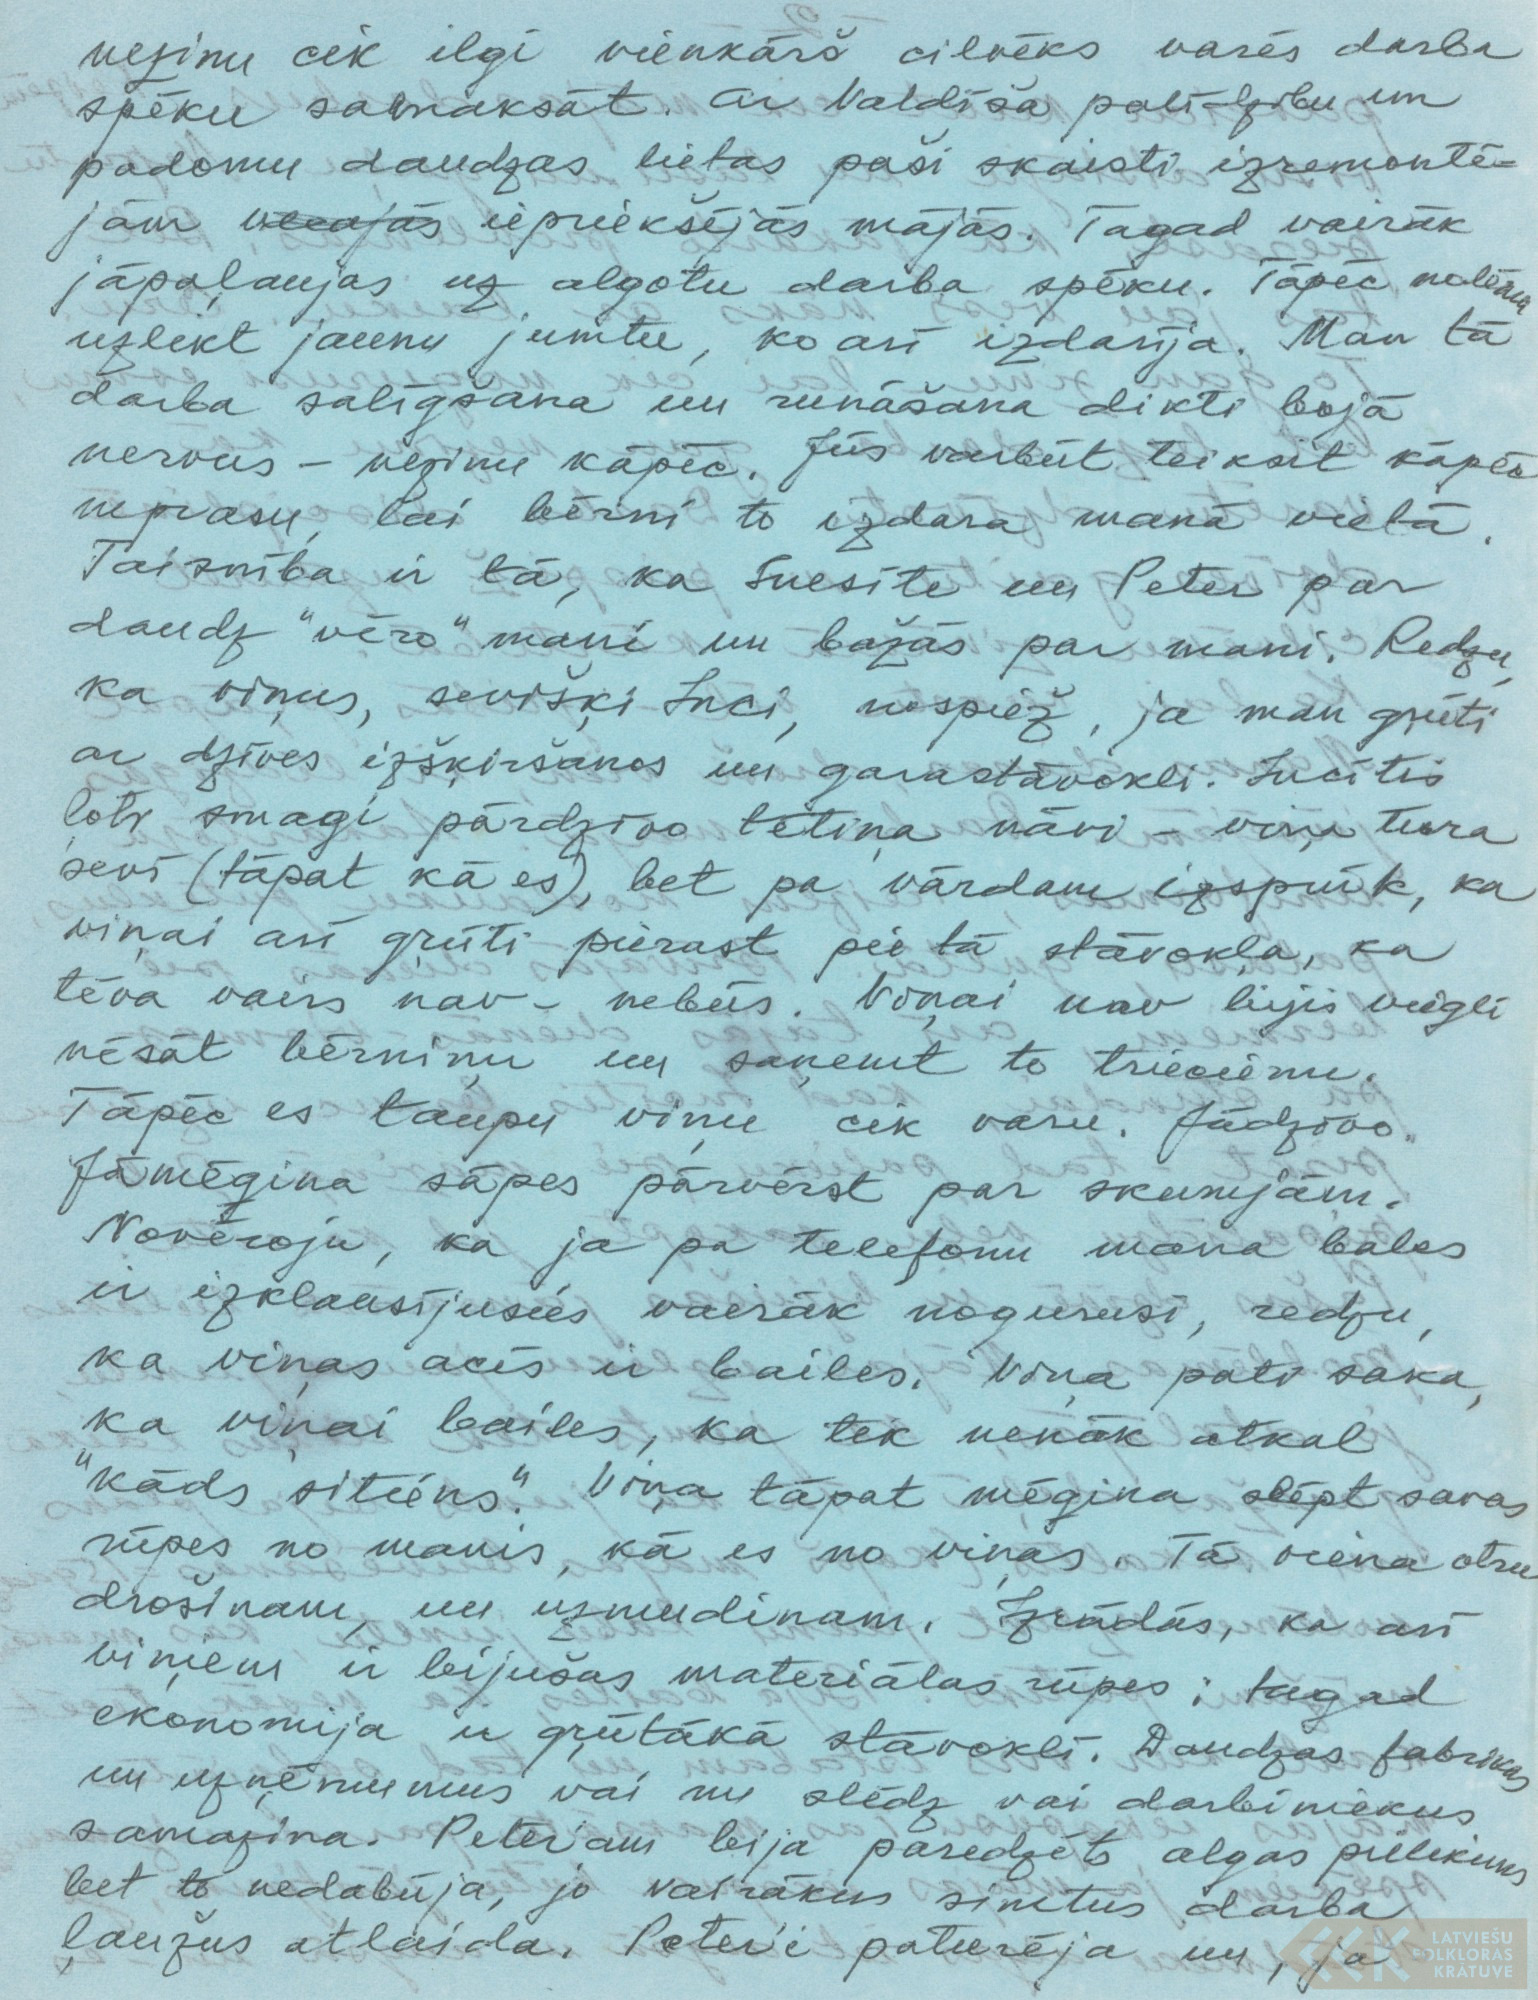 nezinu cik ilgi vienkārš cilvēks varēs darba
spēku samaksāt. Ar Valdīša palīdzību un
padomu daudzas lietas paši skaisti izremontē-
jām vecajās iepriekšējās mājās. Tagad vairāk
jāpaļaujas uz algotu darba spēku. Tāpēc nolēmu
uzlikt jaunu jumtu, ko arī izdarīja. Man tā
darba salīgšana un runāšana dikti bojā
nervus – nezinu kāpēc. Jūs varbūt teiksit kāpēc
neprasu, lai bērni to izdara manā vietā.
Taisnība ir tā, ka Sucsīte un Peter par
daudz "vēro" mani un bažās par mani. Redzu,
ka viņus, sevišķi Suci, nospiež, ja man grūti
ar dzīves izšķiršanos un garastāvokli. Sucītis
ļoti smagi pārdzīvo tētiņa nāvi – viņa tura
sevī (tāpat kā es), bet pa vārdam izsprūk, ka
viņai arī grūti pierast pie tā stāvokļa, ka
tēva vairs nav – nebūs. Viņai nav bijis viegli
nēsāt bērniņu un saņemt to triecienu.
Tāpēc es taupu viņu cik varu. Jādzīvo.
Jāmēģina sāpes pārvērst par skumjām.
Novēroju, ka ja pa telefonu mana balss
ir izklausījusies vairāk nogurusi, redzu,
ka viņas acīs ir bailes. Viņa pati saka,
ka viņai bailes, ka tik nenāk atkal
"kāds sitiens". Viņa tāpat mēģina slēpt savas
rūpes no manis, kā es no viņas. Tā viena otru
drošinam, un uzmudinam. Izrādās, ka arī
viņiem ir bijušas materiālas rūpes; tagad
ekonomija ir grūtākā stāvoklī. Daudzas fabrikas
un uzņēmumus vai nu slēdz vai darbiniekus
samazina. Peter'am bija paredzēts algas pielikums
bet to nedabūja, jo vairākus simtus darba
ļaužus atlaida. Peter'i paturēja un, ja
LATVIEŠU
FOLKLORAS
KRĀTUVE